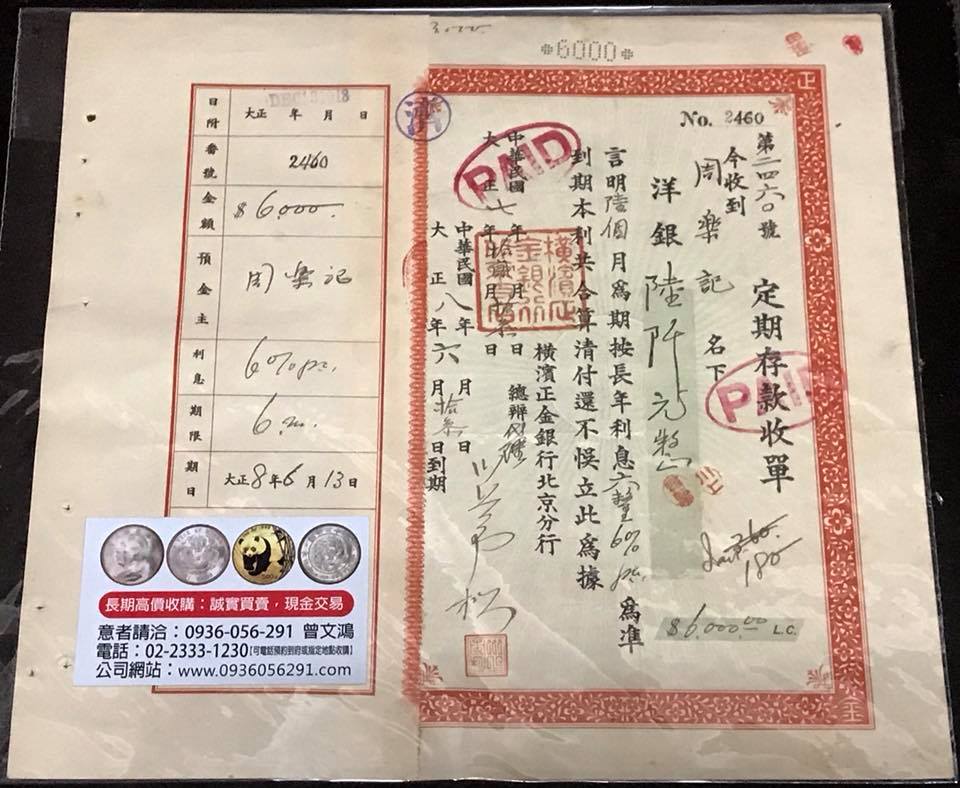 *6000*
No. 2460
第二四六〇號 定期存款收單
今收到
周樂記 名下
洋銀 陸阡元整
言明陸個月為期按長年利息六釐6% 為準
到期本利共合算清付還不悞立此為據
橫濱正金銀行北京分行
中華民國
大正七年拾貳月拾叁日
總辦代理
中華民國八年 月 日
大正八年六月拾叁日到期
橫濱正金銀行
PAID
PAID
濟
180
$6,000.00 L.C.
日附 大正 年 月 日
番號 2460
金額 $6,000.
預金主 周樂記
利息 6% p.a.
期限 6 m.
期日 大正8年6月13日
長期高價收購：誠實買賣，現金交易
意者請洽：0936-056-291 曾文鴻
電話：02-2333-1230【可電話預約到府或指定地點收購】
公司網站：www.0936056291.com